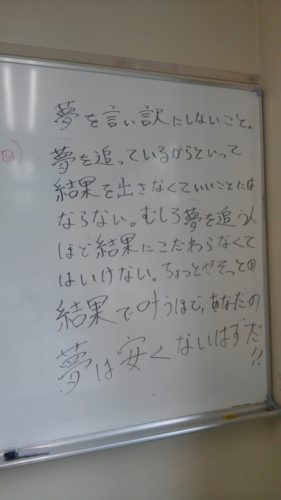 夢を言い訳にしないこと。
夢を追っているからといって
結果を出さなくていいことには
ならない。むしろ夢を追う人
ほど結果にこだわらなくて
はいけない。ちょっとやそっとの
結果で叶うほど、あなたの
夢は安くないはずだ!!